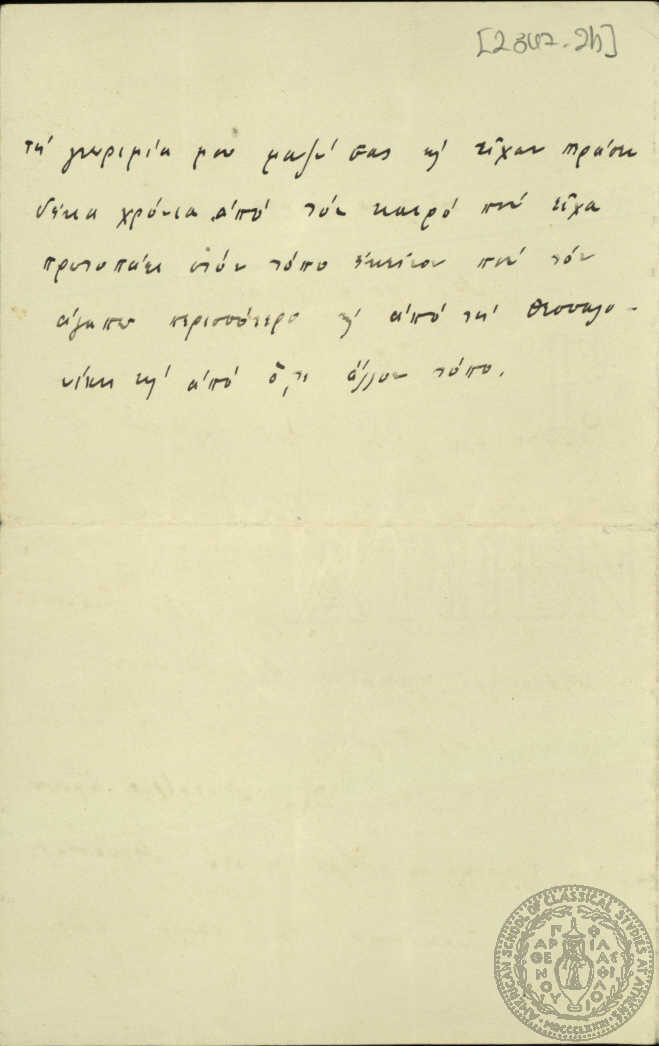 [2367-2b]
τή γνωριμία μου μαζύ σας κι' εἶχαν περάσει
δέκα χρόνια ἀπό τόν καιρό πού εἶχα
πρωτοπάει στόν τόπο ἐκεῖνον πού τόν
ἀγαπῶ περισσότερο κι' ἀπό τή Θεσσαλο-
νίκη κι' ἀπό ὅ,τι ἄλλον τόπο.
AMERICAN SCHOOL OF CLASSICAL STUDIES AT ATHENS
MDCCCLXXXI